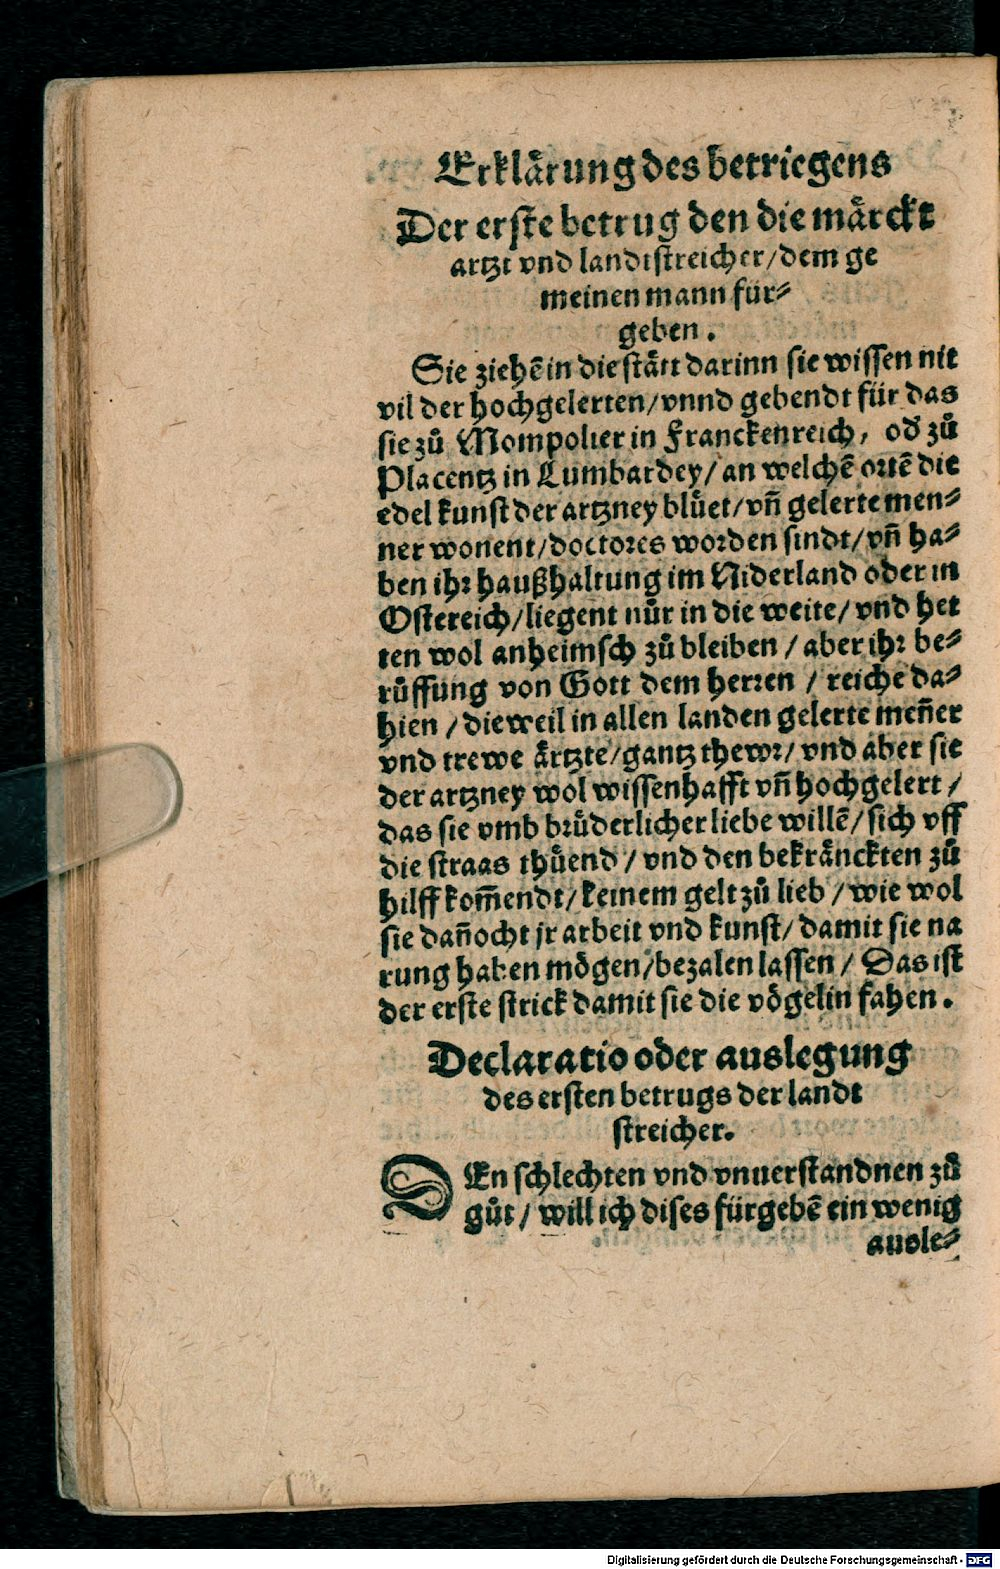 Erklärung des betriegens
Der erste betrug den die märckt
artzt vnd landtstreicher/dem ge
meinen mann für⸗
geben.
Sie ziehẽ in die stätt darinn sie wissen nit
vil der hochgelerten/vnnd gebendt für das
sie zů Mompolier in Franckenreich, od̕ zů
Placentz in Lumbardey/an welchẽ ortẽ die
edel kunst der artzney blüet/vñ gelerte men⸗
ner wonent/doctores worden sindt/vñ ha⸗
ben ihr haußhaltung im Niderland oder in
Ostereich/liegent nůr in die weite/vnd het
ten wol anheimsch zů bleiben/aber ihr be⸗
růffung von Gott dem herren/reiche da⸗
hien/dieweil in allen landen gelerte meñer
vnd trewe ärtzte/gantz thewr/vnd aber sie
der artzney wol wissenhafft vñ hochgelert/
das sie vmb brüderlicher liebe willẽ/sich vff
die straas thüend/vnd den bekränckten zů
hilff kom̃endt/keinem gelt zů lieb/wie wol
sie dañocht jr arbeit vnd kunst/damit sie na
rung haben mögen/bezalen lassen/Das ist
der erste strick damit sie die vögelin fahen.
Declaratio oder auslegung
des ersten betrugs der landt
streicher.
DEn schlechten vnd vnuerstandnen zů
gůt/will ich dises fürgebẽ ein wenig
ausle⸗
Digitalisierung gefördert durch die Deutsche Forschungsgemeinschaft - DFG